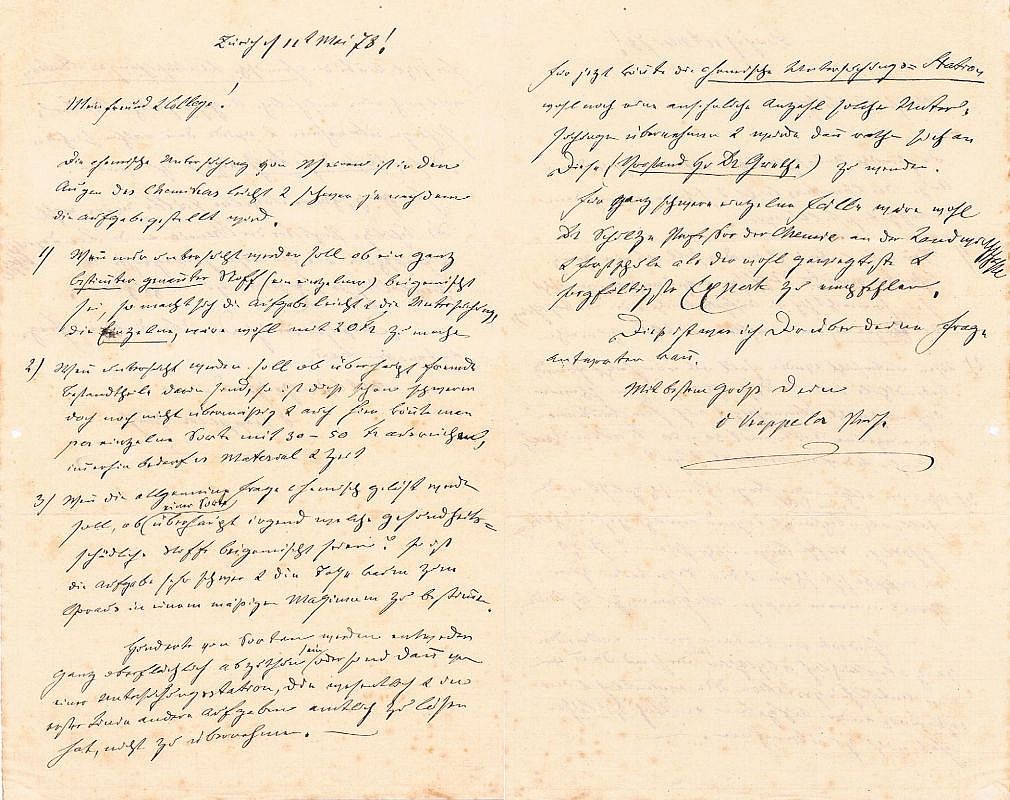 Zürich d 11t Mai 78!
Mein freund & College!
Die chemische Untersuchung von Waaren ist in den
Augen des Chemikers leicht & schwer je nachdem
die Aufgabe gestellt wird.
1) Wenn nur untersucht werden soll ob ein ganz
bestimter genanter Stoff (ein einzelner) beigemischt
sei, so macht sich die Aufgabe leicht & die Untersuchung,
die Einzelne, wäre wohl mit 20 fr zu machen
2) Wenn untersucht werden soll ob überhaupt fremde
Bestandtheile darin sind, so ist dieß schon schwerer
doch noch nicht übermäßig & auch hier könte man
per einzelne Sorte mit 30 – 50 fr ausreichen,
immerhin bedarf es Material & Zeit
3) Wenn die allgemeine Frage chemisch gelöst werden
soll, ob (einer Sorte) überhaupt irgend welche gesundheits=
schädliche Stoffe beigemischt seien? so ist
die Aufgabe sehr schwer & die Taxe kaum zum
Voraus in einem mäßigen Maximum zu bestimen.
Hunderte von Sorten werden entweder
ganz oberflächlich abzuthun sein oder sind dann von
einer Untersuchungsstation, die wesentlich & in
erster Linie andere Aufgaben amtlich zu lösen
hat, nicht zu übernehmen. —
Für jetzt könte die chemische Untersuchungs= Station
wohl noch eine ansehnliche Anzahl solcher Unter-
suchungen übernehmen & würde dann rathen sich an
diese (Vorstand Hr Dr Grethe) zu wenden.
Für ganz schwere einzelne Fälle wäre wohl
Dr Schulze Professor der Chemie an der Landw
& forstschule als der wohl gewiegteste &
sorgfältigste Experte zu empfehlen.
Dieß ist was ich Dir über deine Frage
antworten kann.
Mit bestem Gruß Dein
Kappeler Präs.